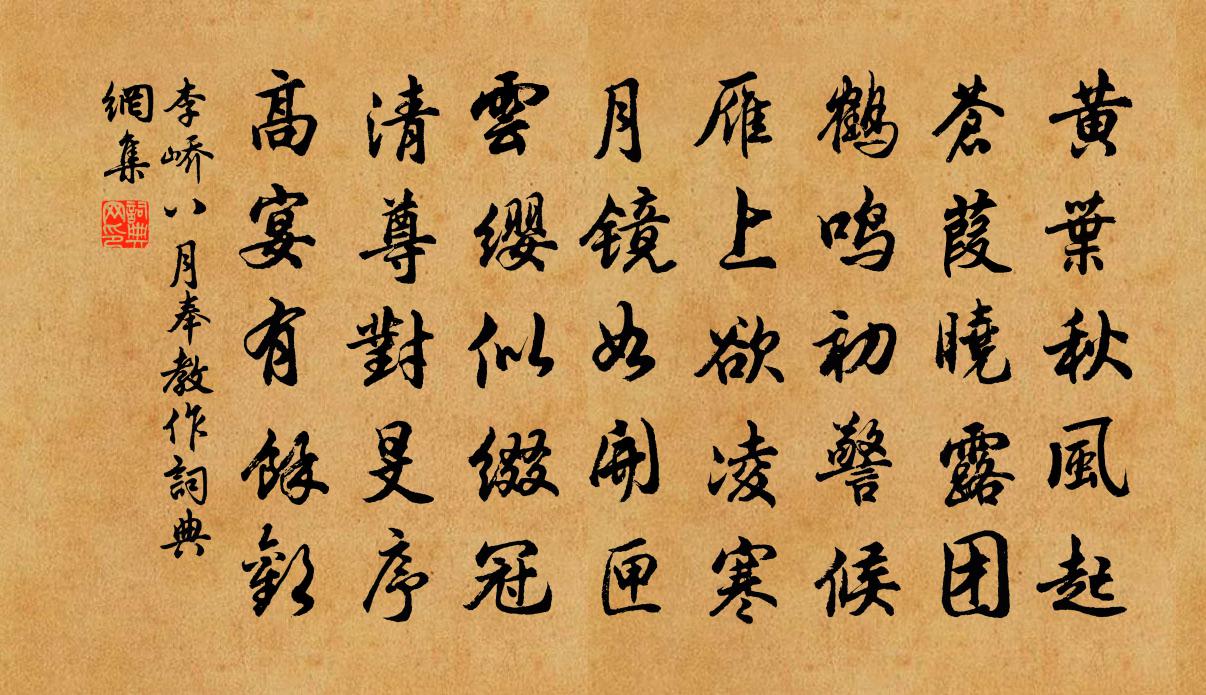 黄葉秋風起
蒼葭曉露团
鶴鸣初警候
雁上欲凌寒
月镜如開匣
雲缨似缀冠
清尊對旻序
高宴有餘歡
李峤八月奉教作詞典
網集
詞典
网印